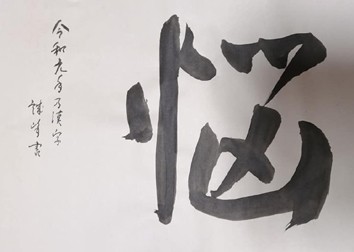 悩
令和元年乃漢字
書